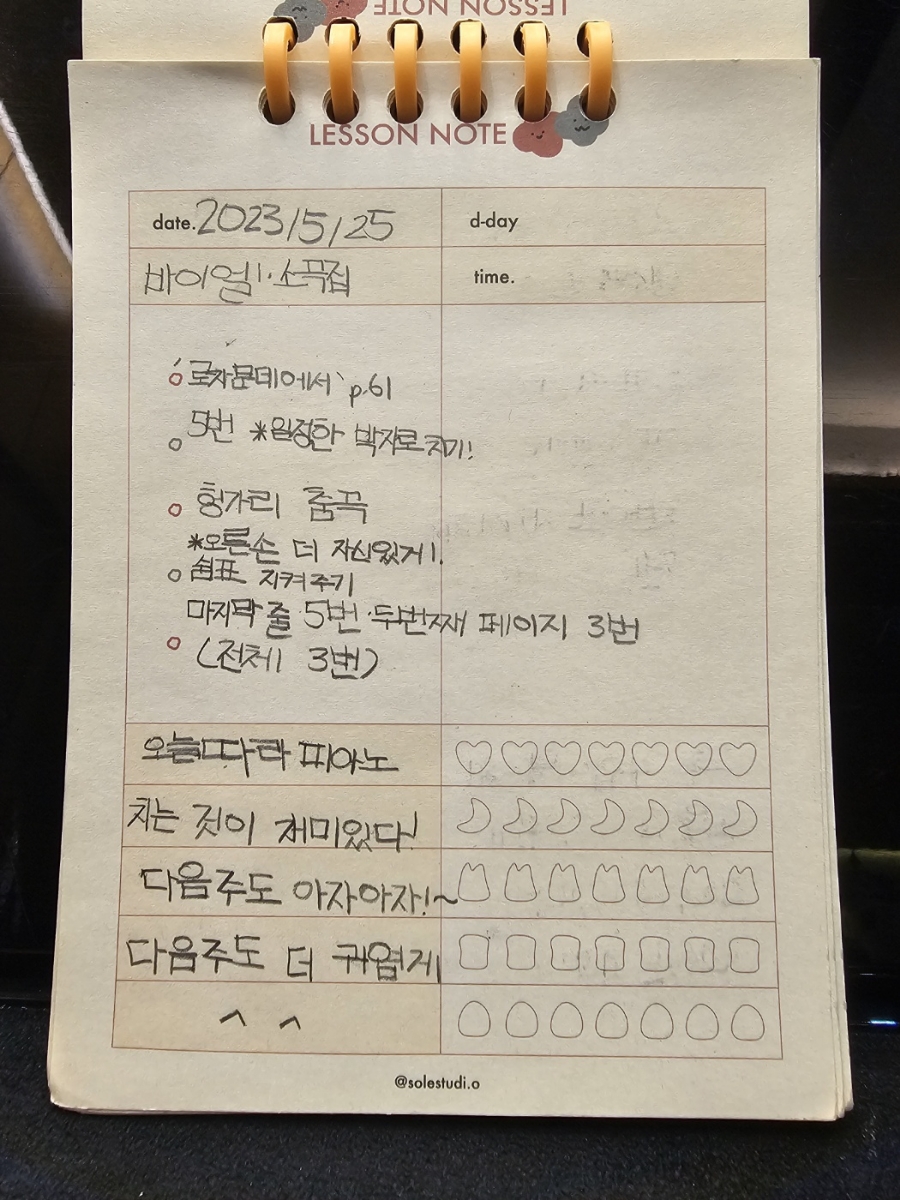 LESSON NOTE
LESSON NOTE
date. 2023/5/25
d-day
바이엘1·소곡집
time.
'로자문데에서' p.61
5번 *일정한 박자로 치기!
헝가리 춤곡
*오른손 더 자신있게!
쉼표 지켜주기
마지막 줄 5번·두번째 페이지 3번
(전체 3번)
오늘따라 피아노
치는 것이 재미있다!
다음주도 아자아자!~
다음주도 더 귀엽게
^ ^
@solestudi.o